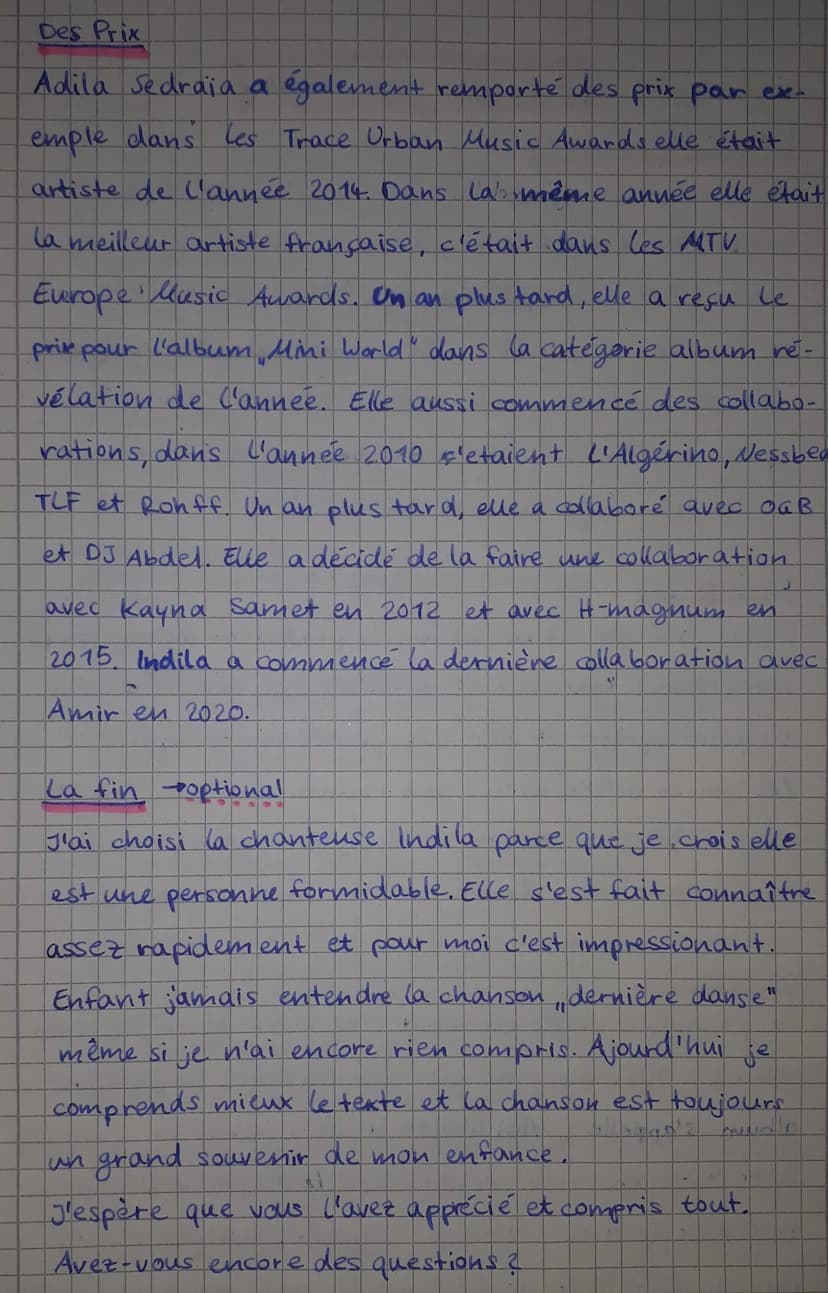 Des Prix
Adila Sedraia a également remporté des prix par ex-
emple dans les Trace Urban Music Awards elle était
artiste de l'année 2014. Dans la même année elle était
la meilleur artiste française, c'était dans les MTV
Europe Music Awards. Un an plus tard, elle a reçu le
prix pour l'album „Mini World" dans la catégorie album ré-
vélation de l'anneé. Elle aussi commencé des collabo-
rations, dans l'année 2010 c'etaient L'Algérino, Nessbeal
TLF et Rohff. Un an plus tard, elle a collaboré avec OGB
et DJ Abdel. Elle a décidé de la faire une collaboration
avec Kayna Samet en 2012 et avec H-magnum en
2015. Indila a commencé la dernière collaboration avec
Amir en 2020.
La fin →optional
J'ai choisi la chanteuse Indila parce que je crois elle
est une personne formidable. Elle s'est fait connaître
assez rapidement et pour moi c'est impressionant.
Enfant jamais entendre la chanson „dernière danse"
même si je n'ai encore rien compris. Ajourd'hui je
comprends mieux le texte et la chanson est toujours
un grand souvenir de mon enfance.
J'espère que vous l'avez apprécié et compris tout.
Avez-vous encore des questions?